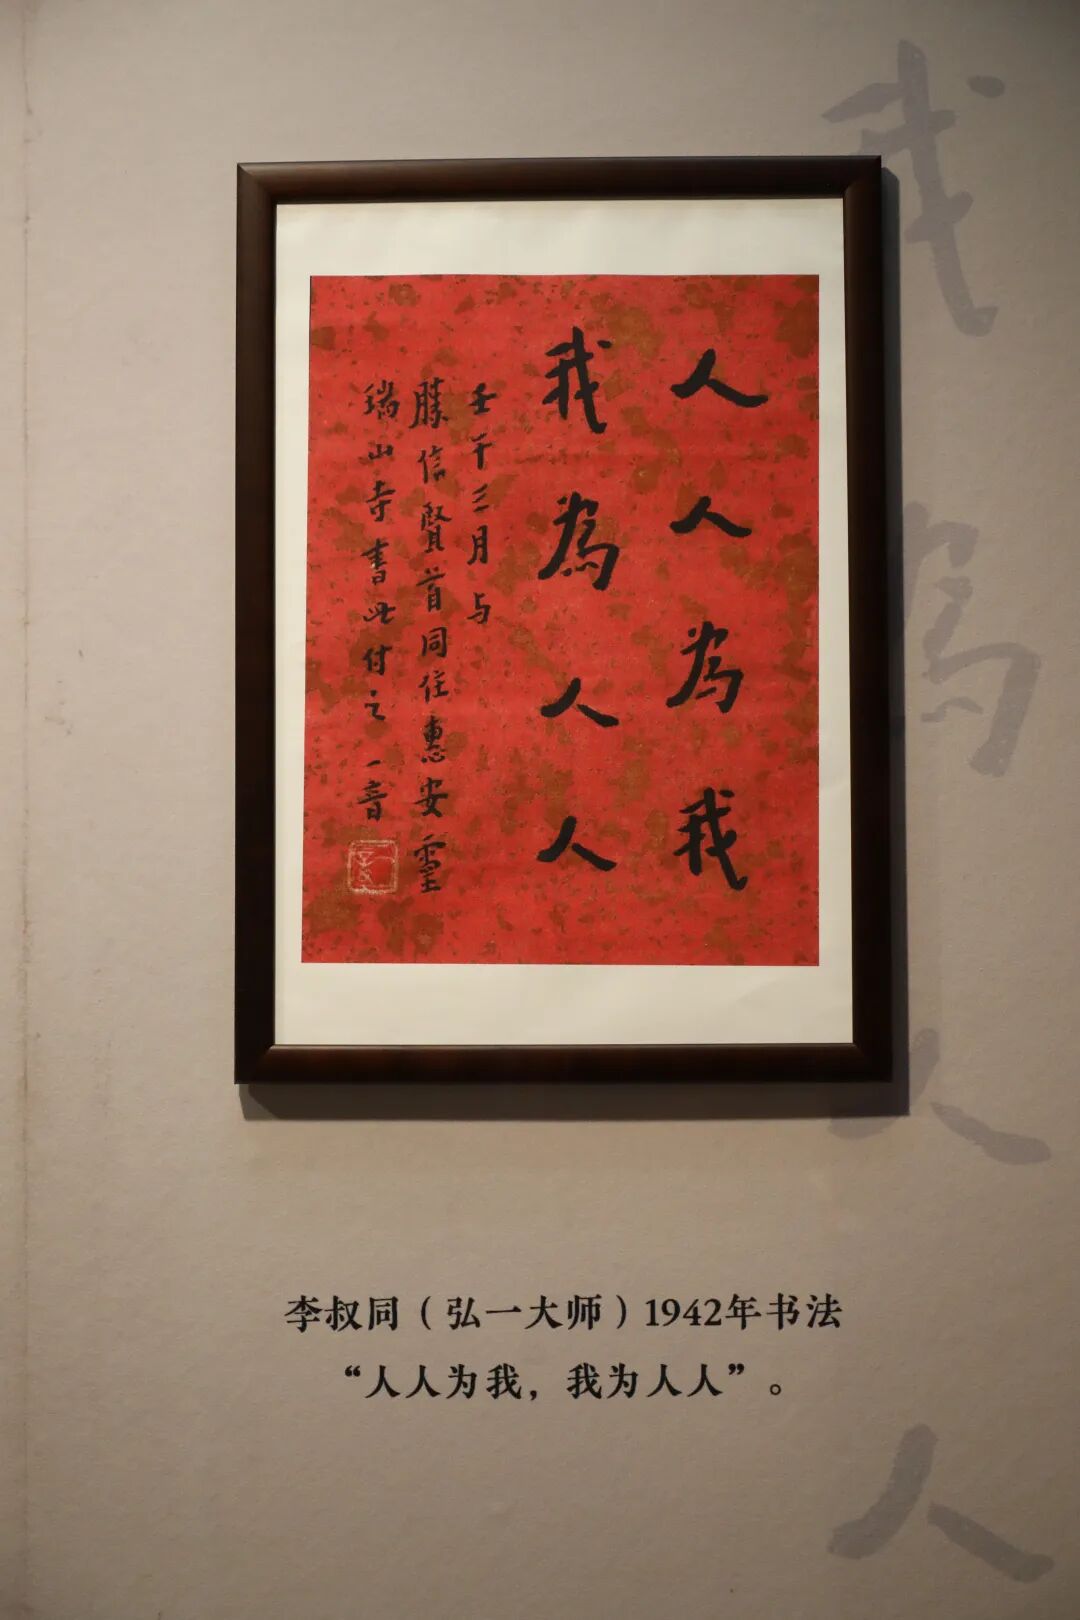 人人為我
我為人人
壬午三月与
勝信賢首同住惠安靈
瑞山寺書此付之 一音
李叔同（弘一大师）1942年书法
“人人为我，我为人人”。
我為人人